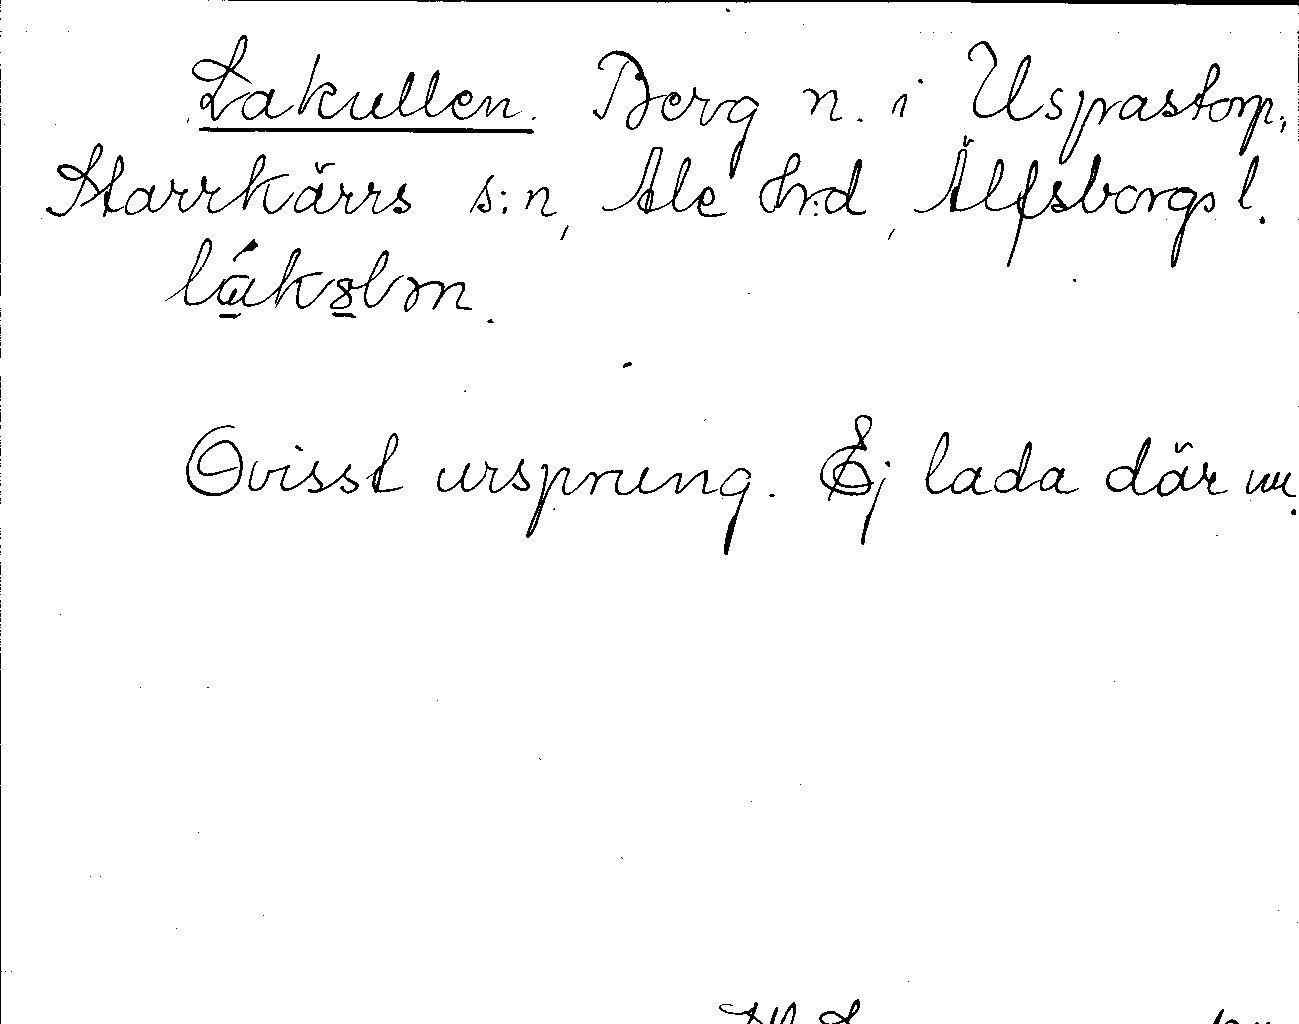 Lakullen. Berg n. i Uspastorp,
Starrkärrs s:n, Ale h:d, Älfsborgs l.
lákslɜn.
Ovisst ursprung. Ej lada där nu.